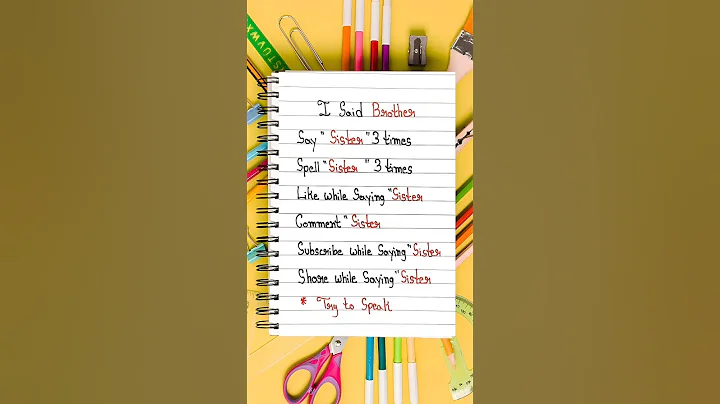 STUVWX
I Said Brother
Say " Sister " 3 times
Spell "Sister " 3 times
Like while Saying "Sister
Comment " Sister
Subscribe while Saying "Sister
Share while Saying "Sister
* Try to Speak